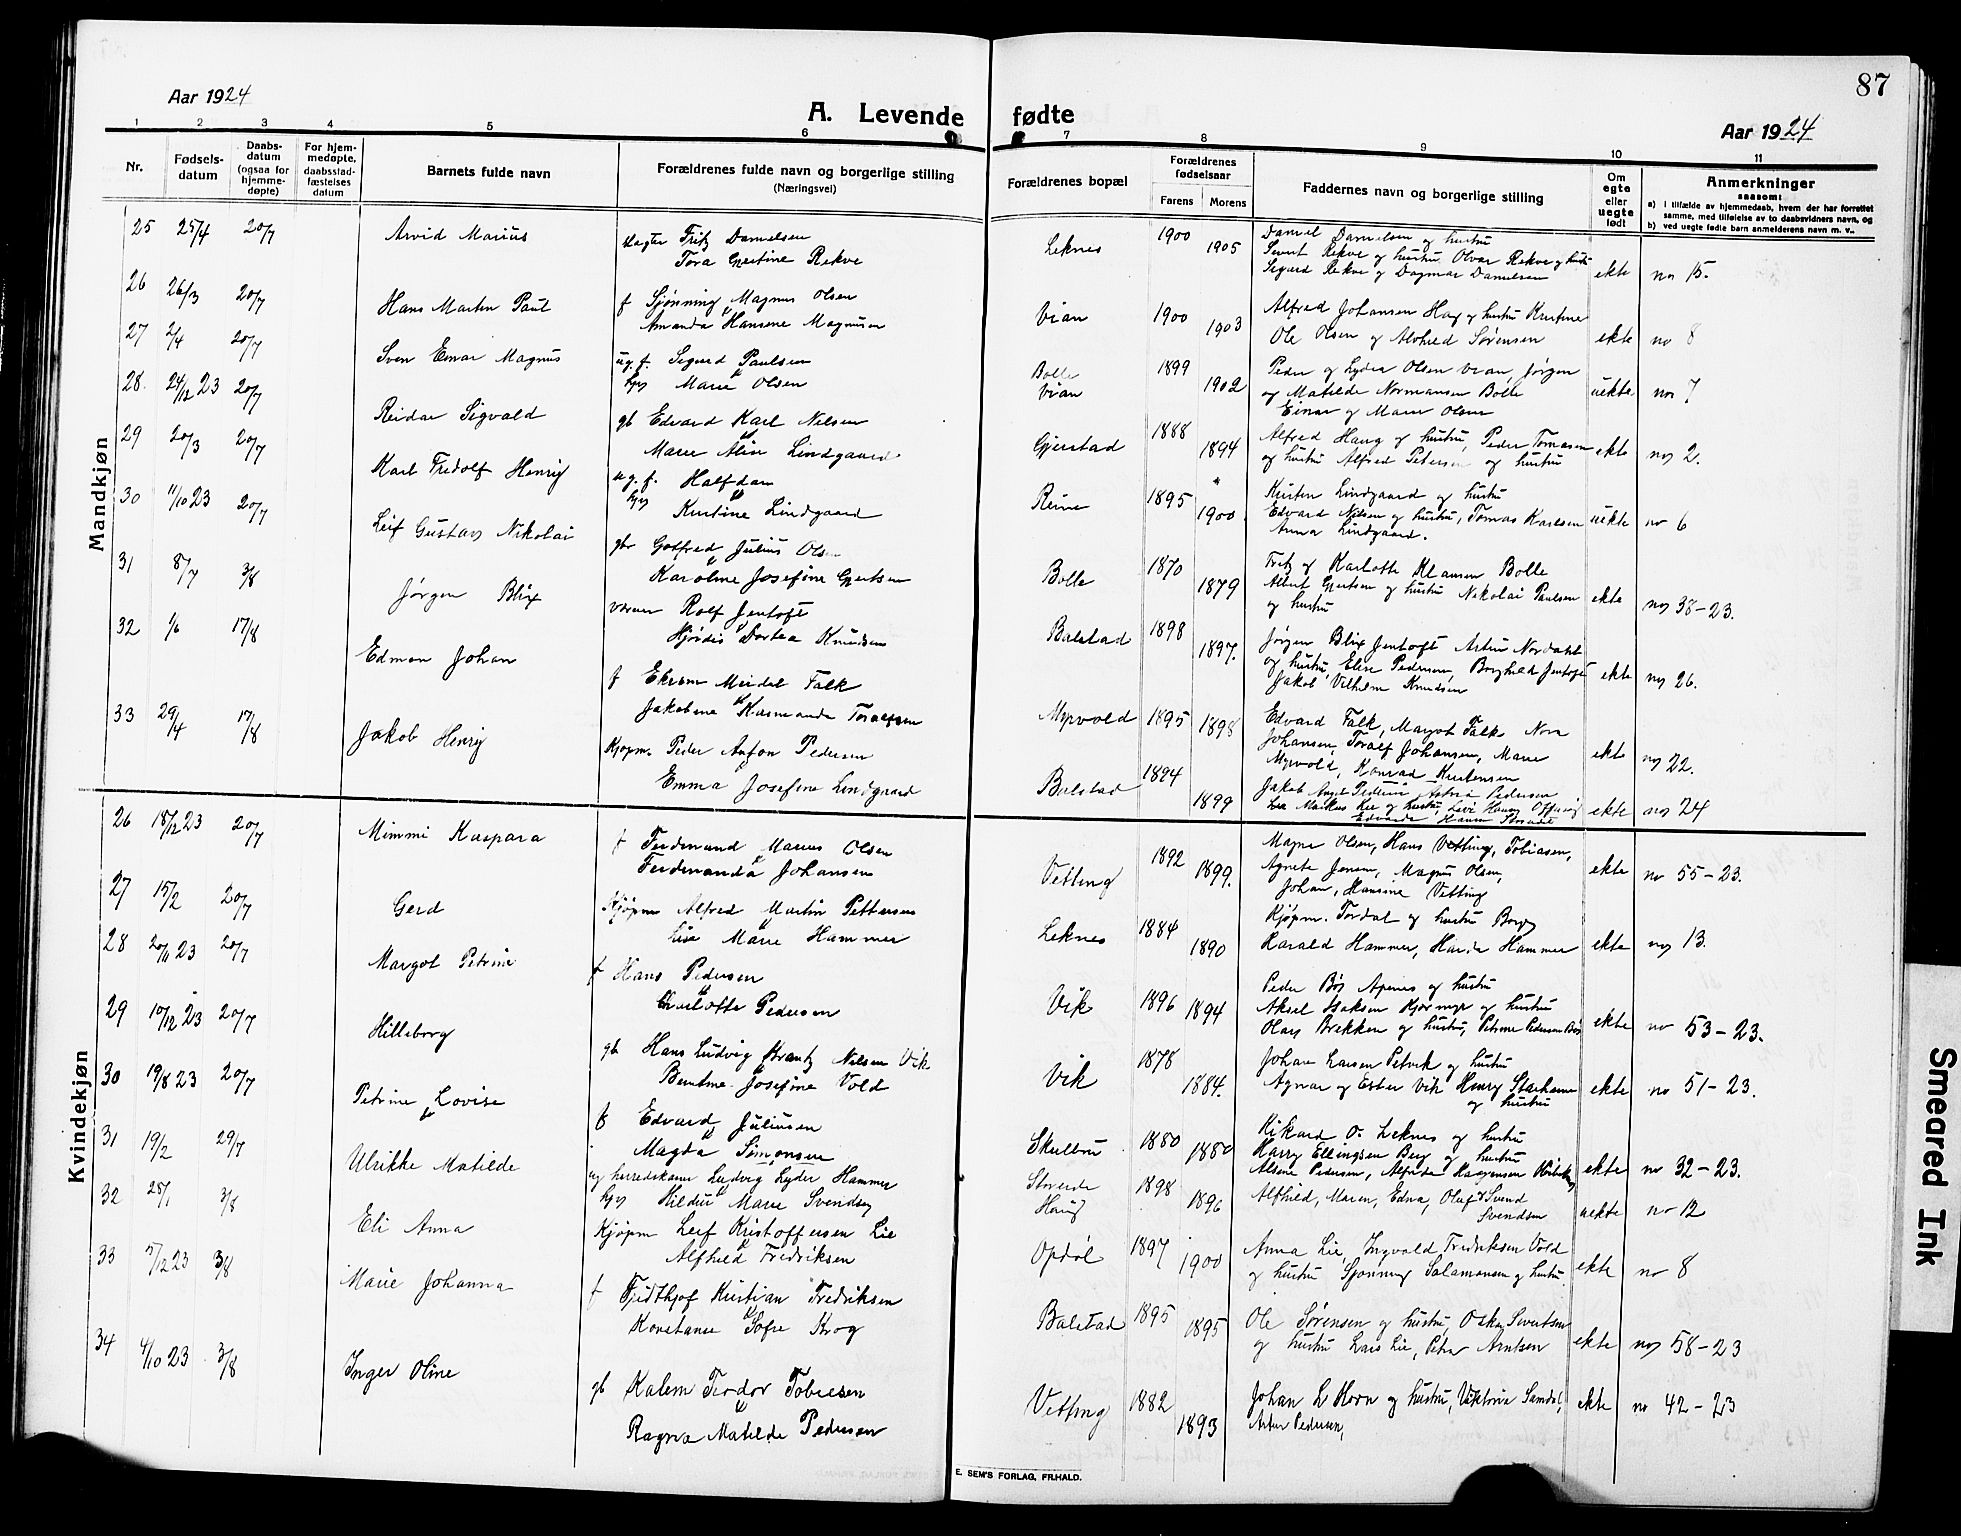 87
Aar 1924
A. Levende fødte
Aar 1924
1 2 3 4 5 6 7 8 9 10 11
Nr.
Fødsels-
datum
Daabs-
datum
(ogsaa for
hjemme-
døpte)
For hjem-
medøpte,
daabsstad-
fæstelses
datum
Barnets fulde navn
Forældrenes fulde navn og borgerlige stilling
(Næringsvei)
Forældrenes bopæl
Forældrenes
fødselsaar
Farens Morens
Faddernes navn og borgerlige stilling
Om
egte
eller
uegte
født
Anmerkninger
saasom:
a) i tilfælde av hjemmedaab, hvem der har forrettet
samme, med tilføielse av to daabsvidners navn, og
b) ved uegte fødte barn anmelderens navn m. v..
Mandkjøn
25 25/4 20/7 Arvid Marius
Fritz Danielsen
Tora Gjertine Rekve
Leknes 1900 1905
Daniel Danielsen og hustru
Sivert Rekve og hustru Olvar Rekve og hustru
Sigurd Rekve og Dagmar Danielsen
ekte no 15.
26 26/3 20/7 Hans Martin Paul
f Sjønning Magnus Olsen
Amanda Hansene Magnussen
Vian 1900 1903
Alfred Johansen Haug og hustru Kristine
Ole Olsen og Alvhild Sørensen
ekte no 8
27 2/4 20/7 Sven Einar Magnus
ug. f. Sigurd Paulsen
pg Marie Olsen
Bolle
Vian 1899 1902
Peder og Lydia Olsen Vian, Jørgen
og Matilde Normansen Bolle
Einar og Marie Olsen
uekte no 7
28. 24/12 23 20/7 Reidar Sigvald
gb Edvard Karl Nilsen
Marie Aline Lindgaard
Gjerstad 1888 1894
Alfred Haug og hustru, Peder Tomasen
og hustru Alfred Petersen og hustru
ekte no 2.
29 20/3 20/7 Karl Fredolf Henry
ug. f. Halfdan
pg Kristine Lindgaard
Reine 1895 1900
Kristen Lindgaard og hustru
Edvard Nilsen og hustru, Tomas Karlsen
Anna Lindgaard.
uekte no 6
30 11/10 23 20/7 Leif Gustav Nikolai
gbr Gotfred Julius Olsen
Karoline Josefine Gjertsen
Bolle 1870 1879
Fritz og Karlotte Klausen Bolle
Albert Gjertsen og hustru Nikolai Paulsen
og hustru
ekte no 38-23.
31 8/7 3/8 Jørgen Blix
Rolf Jentoft
Hjørdis Dortea Knudsen
Balstad 1898 1897.
Jørgen Blix Jentoft Artur Nordahl
og hustru, Elise Pedersen, Borghild Jentoft
Jakob Vilhelm Knudsen
ekte no 26.
32 1/6 17/8 Edmon Johan
f Ekrem Meidel Falk
Jakobine Toralfsen
Myrvold 1895 1898
Edvard Falk, Margot Falk, Nora
Johansen, Toralf Johansen, Marie
Myrvold, Konrad Kristensen
ekte no 22.
33 29/4 17/8 Jakob Henry
Kjøpm. Peder Anton Pedersen
Emma Josefine Lindgaard
Balstad 1894 1899
Jakob Pedersen Pedersen
og hustru, Edvarda
ekte no 24
Kvindekjøn
26 18/12 23 20/7 Mimmi Kaspara
f Ferdinand Marius Olsen
Ferdinanda Johansen
Vetting 1892 1899.
Magne Olsen, Hans Vetting, Tobiasen,
Agnete Jensen, Magnus Olsen,
Johan, Hansine Vetting
ekte no 55-23.
27 15/2 20/7 Gerd
Kjøpm Alfred Martin Pettersen
Lise Marie Hammer
Leknes 1884 1890
Kjøpm. Tordal og hustru Borge
Harald Hammer, Hammer
ekte no 13.
28 20/11 23 20/7 Margot Petrine
f Hans Pedersen
Charlotte Pedersen
Vik 1896 1894
Peder Bøe og hustru
Aksel Isaksen og hustru
Olav Brekken og hustru, Petrine Pedersen
ekte no 53-23.
29 10/12 23 20/7 Hilleborg
gb Hans Ludvig Krantz Nilsen Vik
Bentine Josefine Vold
Vik 1878 1884.
Johan Larsen Petvik og hustru
Agnar og Ester Vik Henry Starheim
og hustru
ekte no 51-23.
30 19/8 23 20/7 Petrine Lovise
f Edvard Juliussen
Magda Simonsen
Skulbru 1880 1880
Rikard O. Leknes og hustru
Harry Ellingsen Berg og hustru
Alsine Pedersen,
ekte no 32-23.
31 19/2 29/7 Ulrikke Matilde
ug herredskasser Ludvig Lyder Hammer
pg Hildur Marie Svendsen
Storeide
Haug 1898 1896
Alfhild, Maren, Edna, Oluf & Svend
Svendsen
uekte no 12
32 25/1 3/8 Eli Anna
Kjøpm Leif Kristoffersen Lie
Alfhild Fredriksen
Opdøl 1897 1900
Anna Lie, Ingvald Fredriksen Vold
og hustru Sjønning Salamonsen og hustru
ekte no 8
33 5/12 23 3/8 Marie Johanna
f Fridthjof Kristian Fredriksen
Konstanse Sofie Krog
Balstad 1895 1895
Ole Sørensen og hustru, Oskar Sivertsen
og hustru Lars Lie, Peter Arntsen
ekte no 58-23
34 4/10 23 3/8 Inger Oline
gb Kalem Teodor Tobiesen
Ragna Matilde Pedersen
Vetting 1882 1893
Johan L Horn og hustru, Viktoria Samdal,
Artur Pedersen,
ekte no 42-23
E. SEM'S FORLAG, FR.HALD.
Smeared Ink